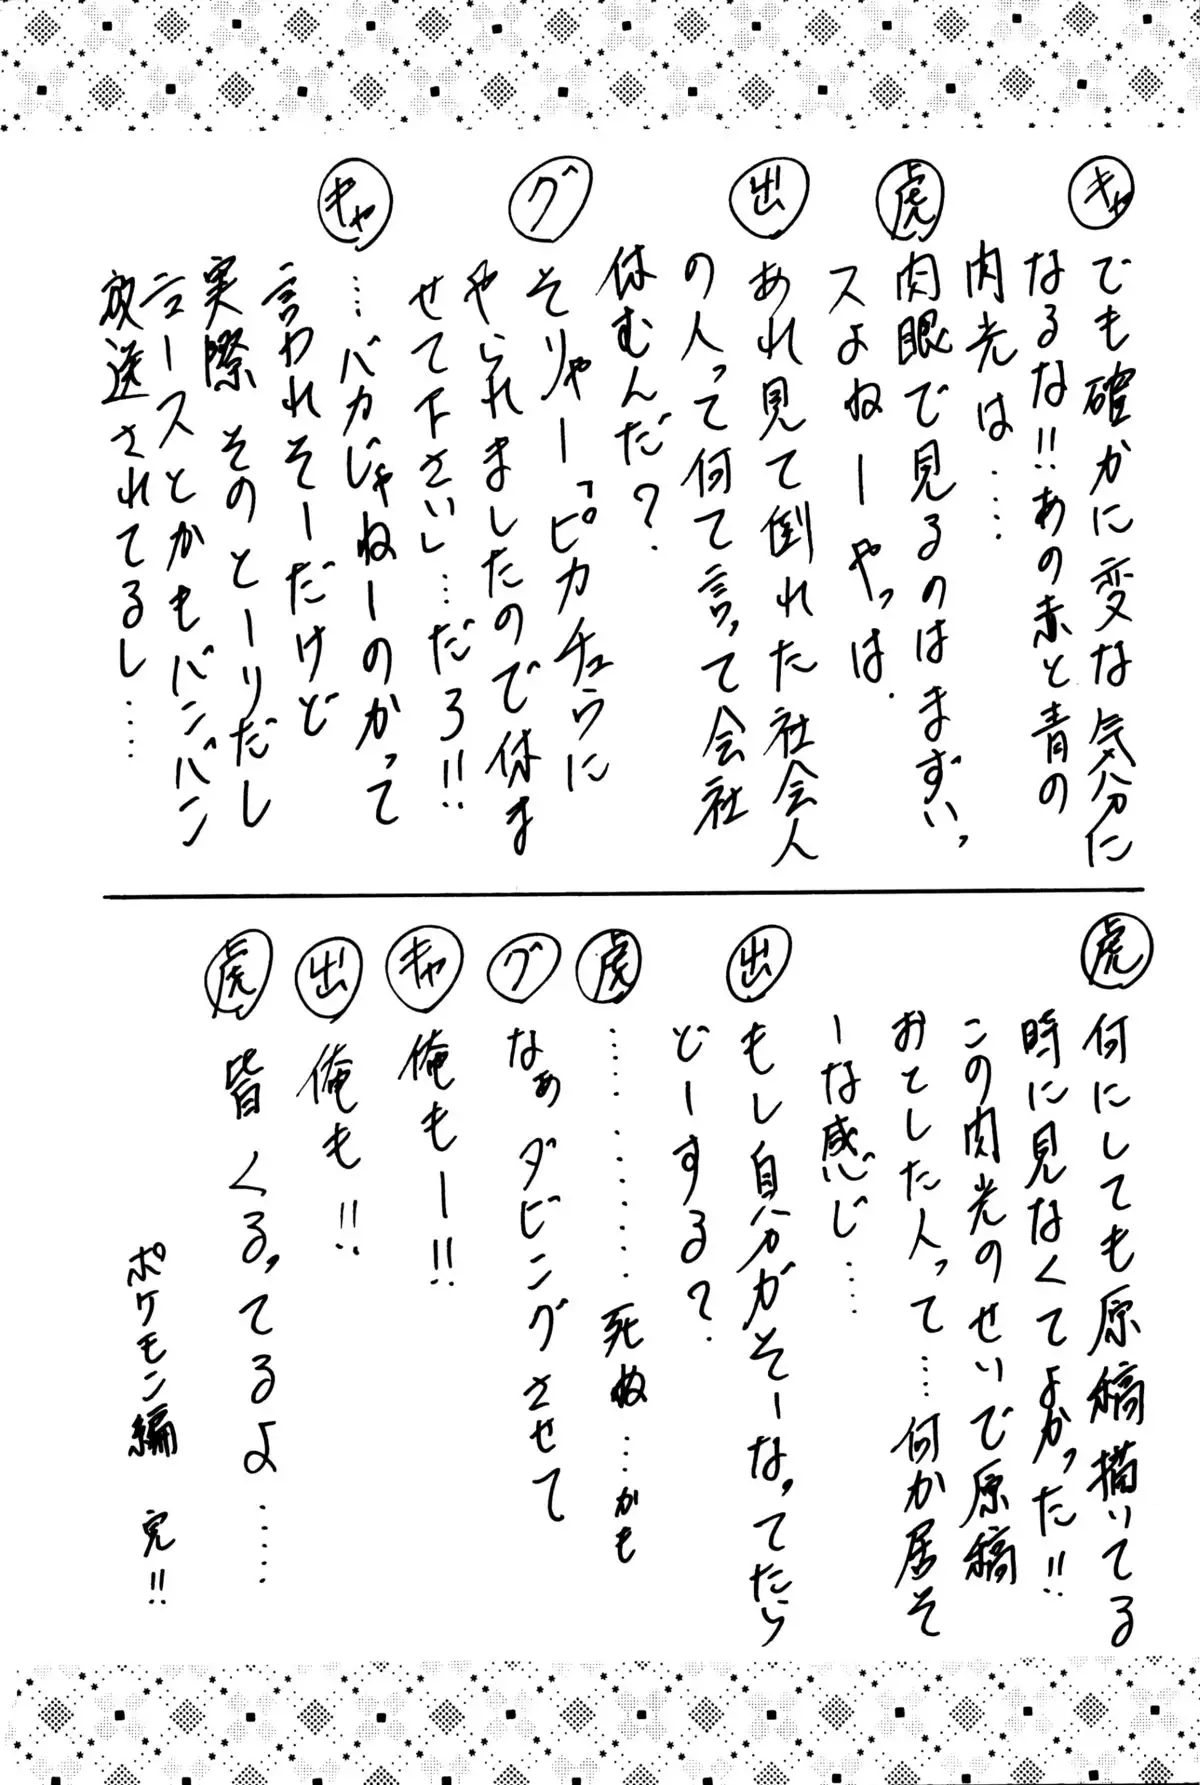 キャ でも確かに変な気分に
なるな!!あの赤と青の
肉光は……
虎 肉眼で見るのはまずいっ
スよねーやっは.
出 あれ見て倒れた社会人
の人って何て言って会社
休むんだ?
グ そりゃー「ピカチュウに
やられましたので休ま
せて下さい」…だろ!!
キャ …バカじゃねーのかって
言われそーだけど
実際 そのとーりだし
ニュースとかもバンバン
放送されてるし……
虎 何にしても原稿描いてる
時に見なくてよかった!!
この肉光のせいで原稿
おとした人って…何か居そ
ーな感じ…
出 もし自分がそーなってたら
どーする?
虎 …………死ぬ…かも
グ なぁ ダビングさせて
キャ 俺もー!!
出 俺も!!
虎 皆 くるってるよ……
ポケモン編 完!!